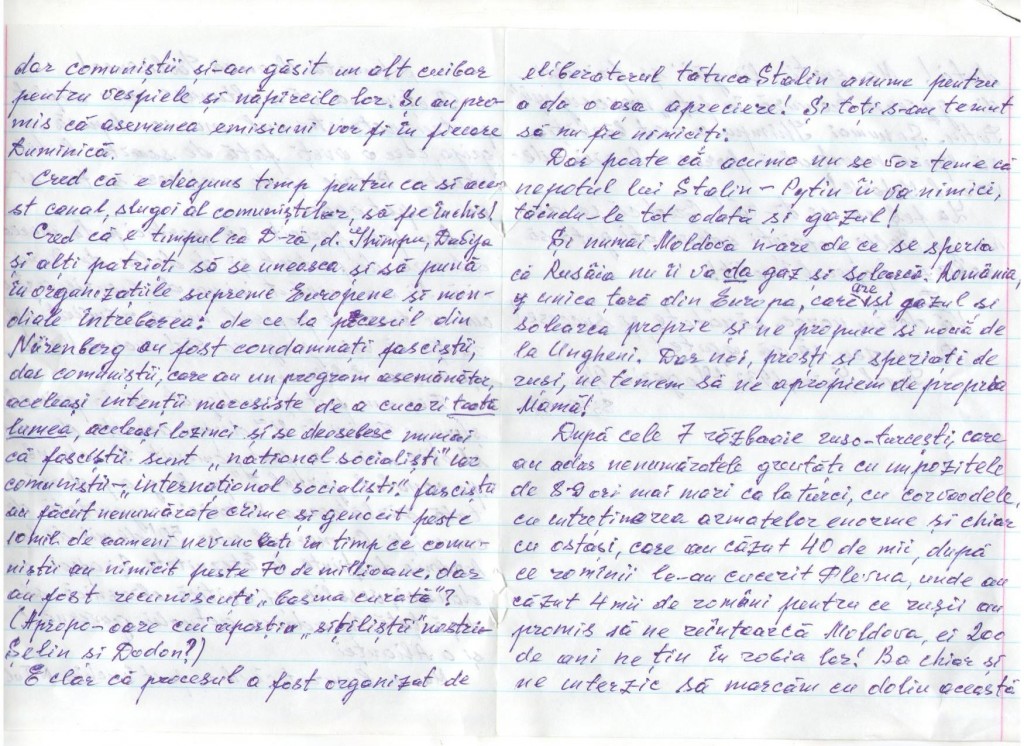 dar comuniștii și-au găsit un alt cuibar
pentru vespiele și năpîrcile lor. Și au pro-
mis că asemenea emisiuni vor fi în fiecare
Duminică.
Cred că e deajuns timp pentru ca și ace-
st canal, slugoi al comuniștilor, să fie închis!
Cred că e timpul ca D-ră, d. Ghimpu, Dabija
și alți patrioți să se unească și să pună
în organizațiile supreme Europene și mon-
diale întrebarea: de ce la procesul din
Nürenberg au fost condamnați fasciștii,
dar comuniștii, care au un program asemănător,
aceleași intenții marcsiste de a cuceri toată
lumea, aceleași lozinci și se deosebesc numai
că fasciștii sunt „național socialiști" iar
comuniștii – „internațional socialiști". fasciștii
au făcut nenumărate crime și genocit peste
10 mil. de oameni nevinovați în timp ce comu-
niștii au nimicit peste 70 de millioane, dar
au fost recunoscuți „basma curată"?
(Apropo – care cui apostia „sibiliștii" noștri
Șelin și Dodon?)
E clar că procesul a fost organizat de
eliberatorul tătuca Stalin anume pentru
a da o așa apreciere! Și toți s-au temut
să nu fie nimiciți.
Dar poate că acuma nu se vor teme că
nepotul lui Stalin – Putin îi va nimici,
tăindu-le tot odată și gazul!
Și numai Moldova n-are de ce se speria
că Rusâia nu îi va da gaz și solearcă. România,
e unica țară din Europa, care are și gazul și
solearca proprie și ne propune și nouă de
la Ungheni. Dar noi, proști și speriați de
ruși, ne temem să ne apropiem de propria
Mamă!
După cele 7 războaie ruso-turcești, care
au adus nenumăratele greutăți cu impozitele
de 8-9 ori mai mari ca la turci, cu corvoadele,
cu întreținerea armatelor enorme și chiar
cu ostași, care au căzut 40 de mii, după
ce romînii le-au cucerit Plevna, unde au
căzut 4 mii de români pentru ce rușii au
promis să ne reîntoarcă Moldova, ei 200
de ani ne țin în robia lor! Ba chiar și
ne interzic să marcăm cu doliu această